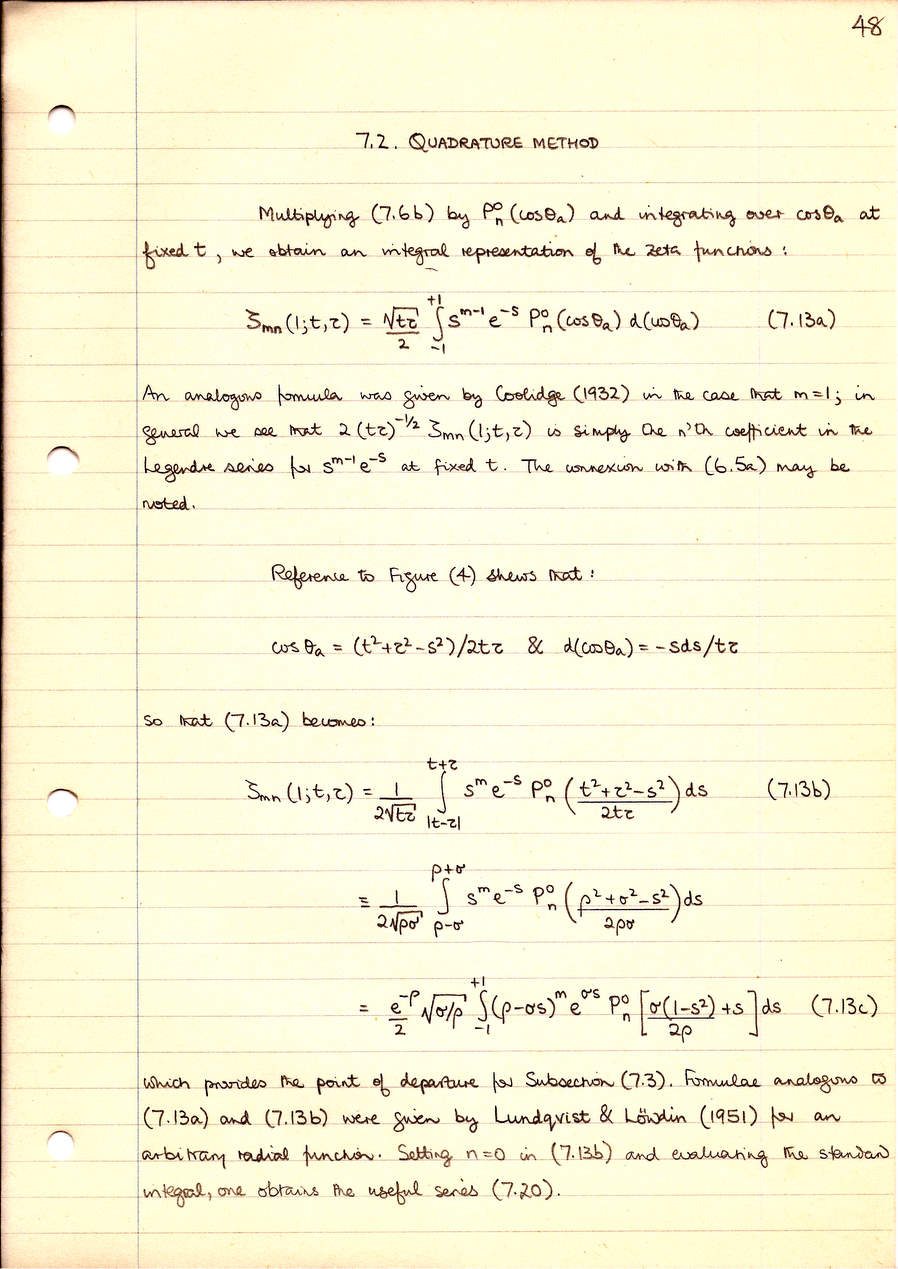 48
7.2. QUADRATURE METHOD
Multiplying (7.6b) by Pₙ⁰(cosθₐ) and integrating over cosθₐ at
fixed t, we obtain an integral representation of the zeta functions:
ζₘₙ(1;t,τ) = √(tτ)/2 ∫₋₁⁺¹ sᵐ⁻¹e⁻ˢ Pₙ⁰(cosθₐ) d(cosθₐ) (7.13a)
An analogous formula was given by Coolidge (1932) in the case that m=1; in
general we see that 2(tτ)^(-1/2) ζₘₙ(1;t,τ) is simply the n'th coefficient in the
Legendre series for sᵐ⁻¹e⁻ˢ at fixed t. The connexion with (6.5a) may be
noted.
Reference to Figure (4) shews that:
cos θₐ = (t²+τ²-s²)/2tτ & d(cosθₐ) = -sds/tτ
so that (7.13a) becomes:
ζₘₙ(1;t,τ) = 1/(2√(tτ)) ∫_{|t-τ|}^{t+τ} sᵐe⁻ˢ Pₙ⁰((t²+τ²-s²)/2tτ) ds (7.13b)
≡ 1/(2√(ρσ)) ∫_{ρ-σ}^{ρ+σ} sᵐe⁻ˢ Pₙ⁰((ρ²+σ²-s²)/2ρσ) ds
= e^(-ρ)/2 √(σ/ρ) ∫₋₁⁺¹ (ρ-σs)ᵐ e^(σs) Pₙ⁰[σ(1-s²)/2ρ + s] ds (7.13c)
which provides the point of departure for Subsection (7.3). Formulae analogous to
(7.13a) and (7.13b) were given by Lundqvist & Löwdin (1951) for an
arbitrary radial function. Setting n=0 in (7.13b) and evaluating the standard
integral, one obtains the useful series (7.20).